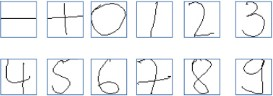 - + 0 1 2 3
4 5 6 7 8 9